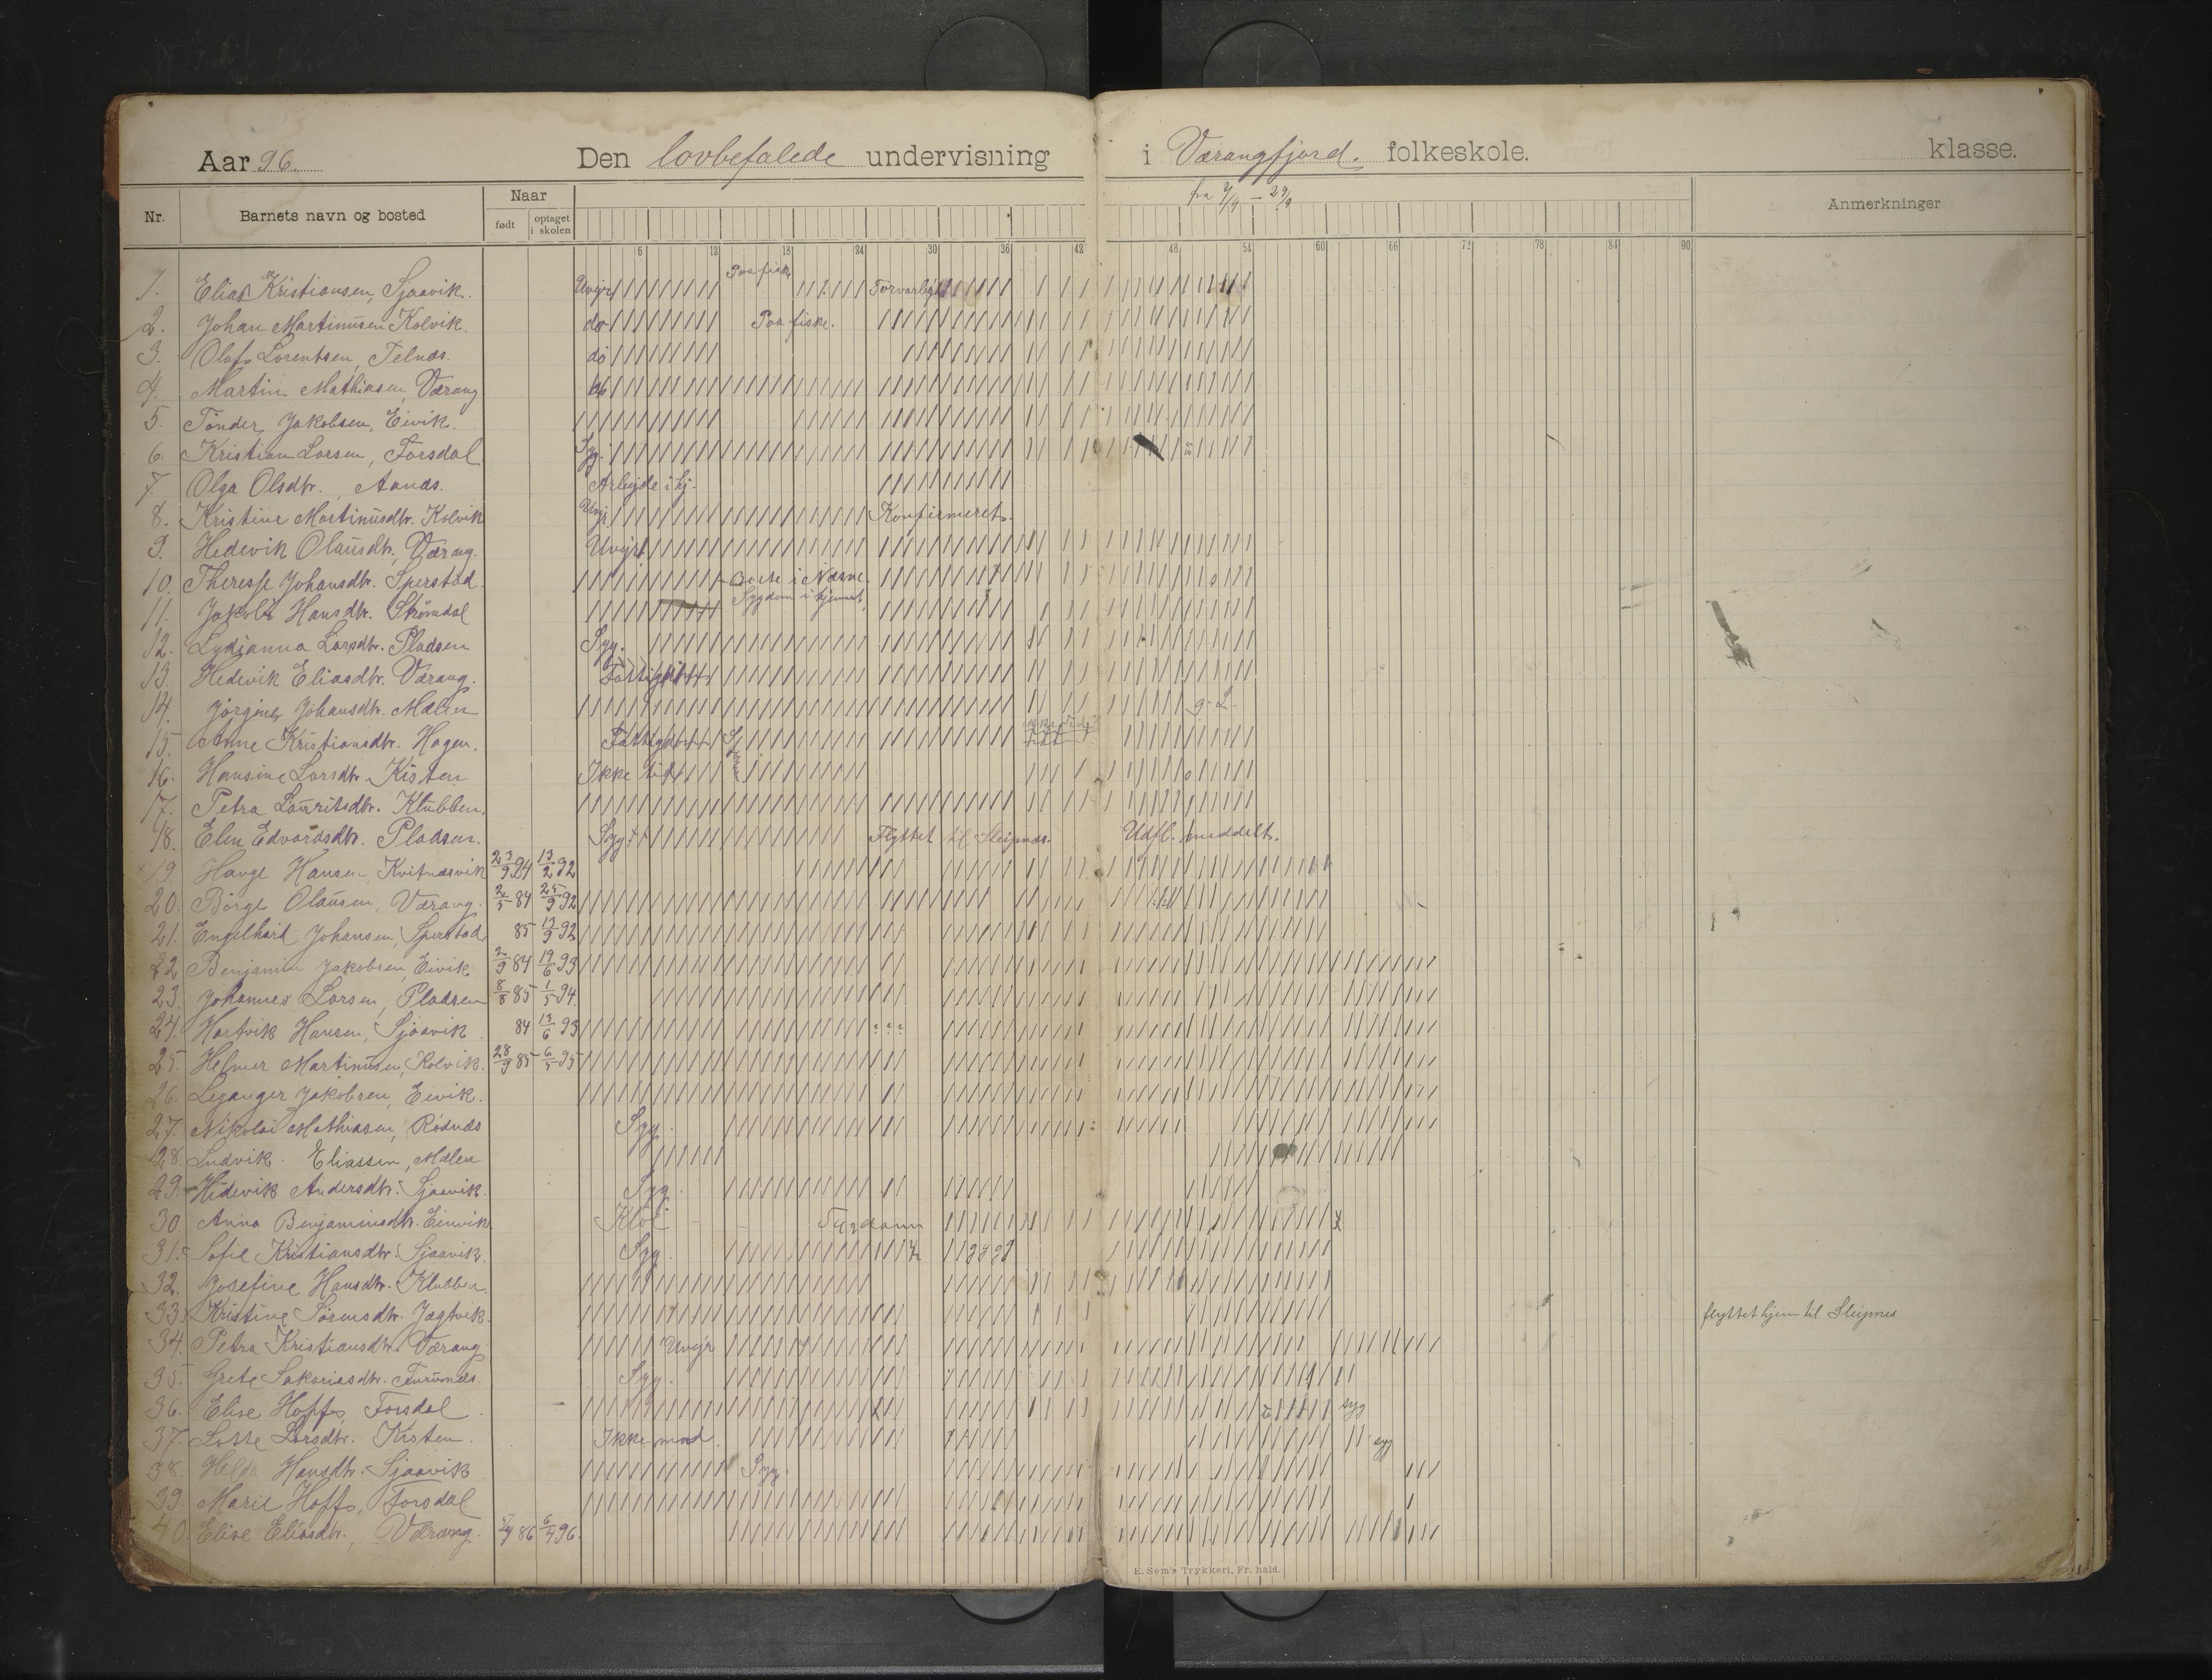 Aar 96. Den lovbefalede undervisning i Værangfjord. folkeskole. klasse.
Nr. Barnets navn og bosted Naar født optaget i skolen fra 7/9 — 29/9 Anmerkninger
6 12 18 24 30 36 42 48 54 60 66 72 78 84 90
Paa fiske
1. Elias Kristiansen, Sjaavik. Uvejr Forvarligt
2. Johan Martinusen Kolvik. do Paa fiske.
3. Olaf Lorentsen, Telnæs. do
4. Martin Mathiasen, Værang
5. Tönder Jakobsen, Eivik.
6. Kristian Larsen, Forsdal Syg.
7. Olga Olsdtr., Aanæs. Arbejde i hj.
8. Kristine Martinusdtr. Kolvik Uvejr Konfirmeret.
9. Hedevik Olausdtr., Værang. Uvejr
10. Theresse Johansdtr. Sperstad. i Næsne.
11. Jakobi Hansdtr. Strömdal Sygdom i hjemmet
12. Lydianna Larsdtr. Pladsen Syg.
13. Hedevik Eliasdtr. Værang. Fattigdom
14. Jörgine Johansdtr. Mælen
15. Anne Kristiansdtr. Hagen. Fattigdom
16. Hansine Larsdtr. Kisten Ikke tid
17. Petra Lauritsdtr. Klubben.
18. Elen Edvardsdtr. Pladsen. Syg Flyttet til Sleipnæs. Udfl. meddelt.
19 Hauge Hansen, Kvitnæsvik 23/9 84 13/2 92
20. Börge Olausen, Værang. 2/5 84 25/9 92
21. Engelhart Johansen, Sperstad 85 13/9 92
22 Benjamin Jakobsen, Eivik 2/9 84 19/6 93
23. Johannes Larsen, Pladsen 8/8 85 1/5 94.
24. Hartvik Hansen, Sjaavik 84 13/6 93
25. Helmer Martinusen, Kolvik. 28/9 85 6/5 95
26. Leganger Jakobsen, Eivik.
27. Nikolai Mathiasen, Rödnæs Syg.
28. Ludvik. Eliassen, Mælen
29. Hedevik Andersdtr. Sjaavik. Syg.
30. Anna Benjaminsdtr. Einvik Klöe
31. Sofie Kristiansdtr. Sjaavik. Syg.
32. Josefine Hansdtr. Klubben.
33. Kristine Sörensdtr. Jægtvik. flyttet hjem til Sleipnes
34. Petra Kristiansdtr. Værang Uvejr
35. Grete Sakariasdtr. Furumæs. Syg.
36. Elise Hoff, Forsdal syg
37. Lotte Larsdtr. Kisten. Ikke mad. syg
38. Helda Hansdtr. Sjaavik Syg.
39. Marie Hoff, Forsdal
40. Elise Eliasdtr., Værang. 86 96.
E. Sem's Trykkeri, Fr. hald.